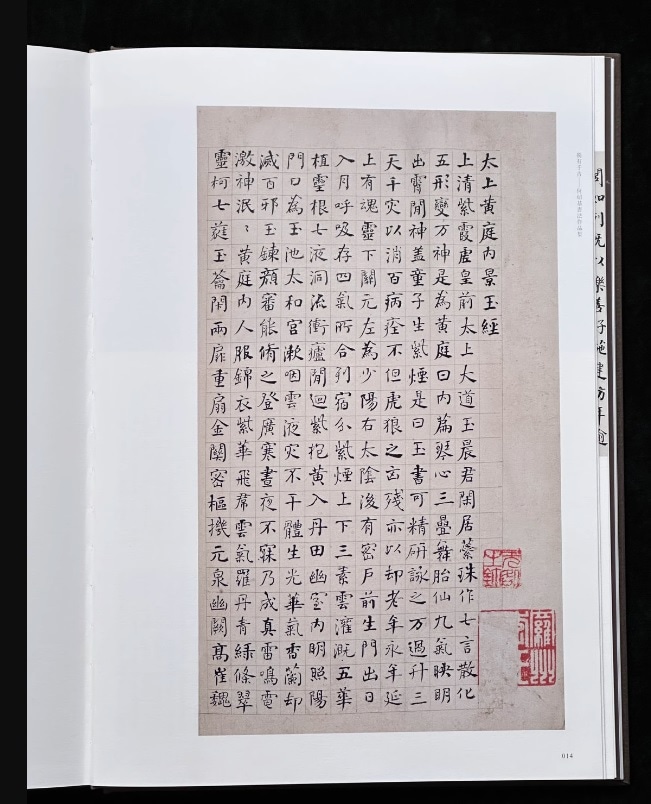 太上黄庭内景玉經
上清紫霞虛皇前太上大道玉晨君閑居蘂珠作七言散化
五形變万神是為黄庭曰内篇琴心三疊舞胎仙九氣映明
出霄間神盖童子生紫煙是曰玉書可精研詠之万過升三
天千灾以消百病痊不但虎狼之凶殘亦以却老年永年延
上有魂靈下關元左為少陽右太陰後有密戶前生門出日
入月呼吸存四氣所合列宿分紫煙上下三素雲灌溉五華
植靈根七液洞流衝廬間迴紫抱黄入丹田幽室内明照陽
門口為玉池太和官漱咽雲液灾不干體生光華氣香蘭却
滅百邪玉鍊顏審能脩之登廣寒晝夜不寐乃成真雷鳴電
激神泯〻黄庭内人服錦衣紫華飛帬雲氣羅丹青綠條翠
靈柯七蕤玉籥閑兩扉重扇金關密樞機元泉幽闕高崔巍
既以樂善好施建坊年逾
何紹基書法作品集
014